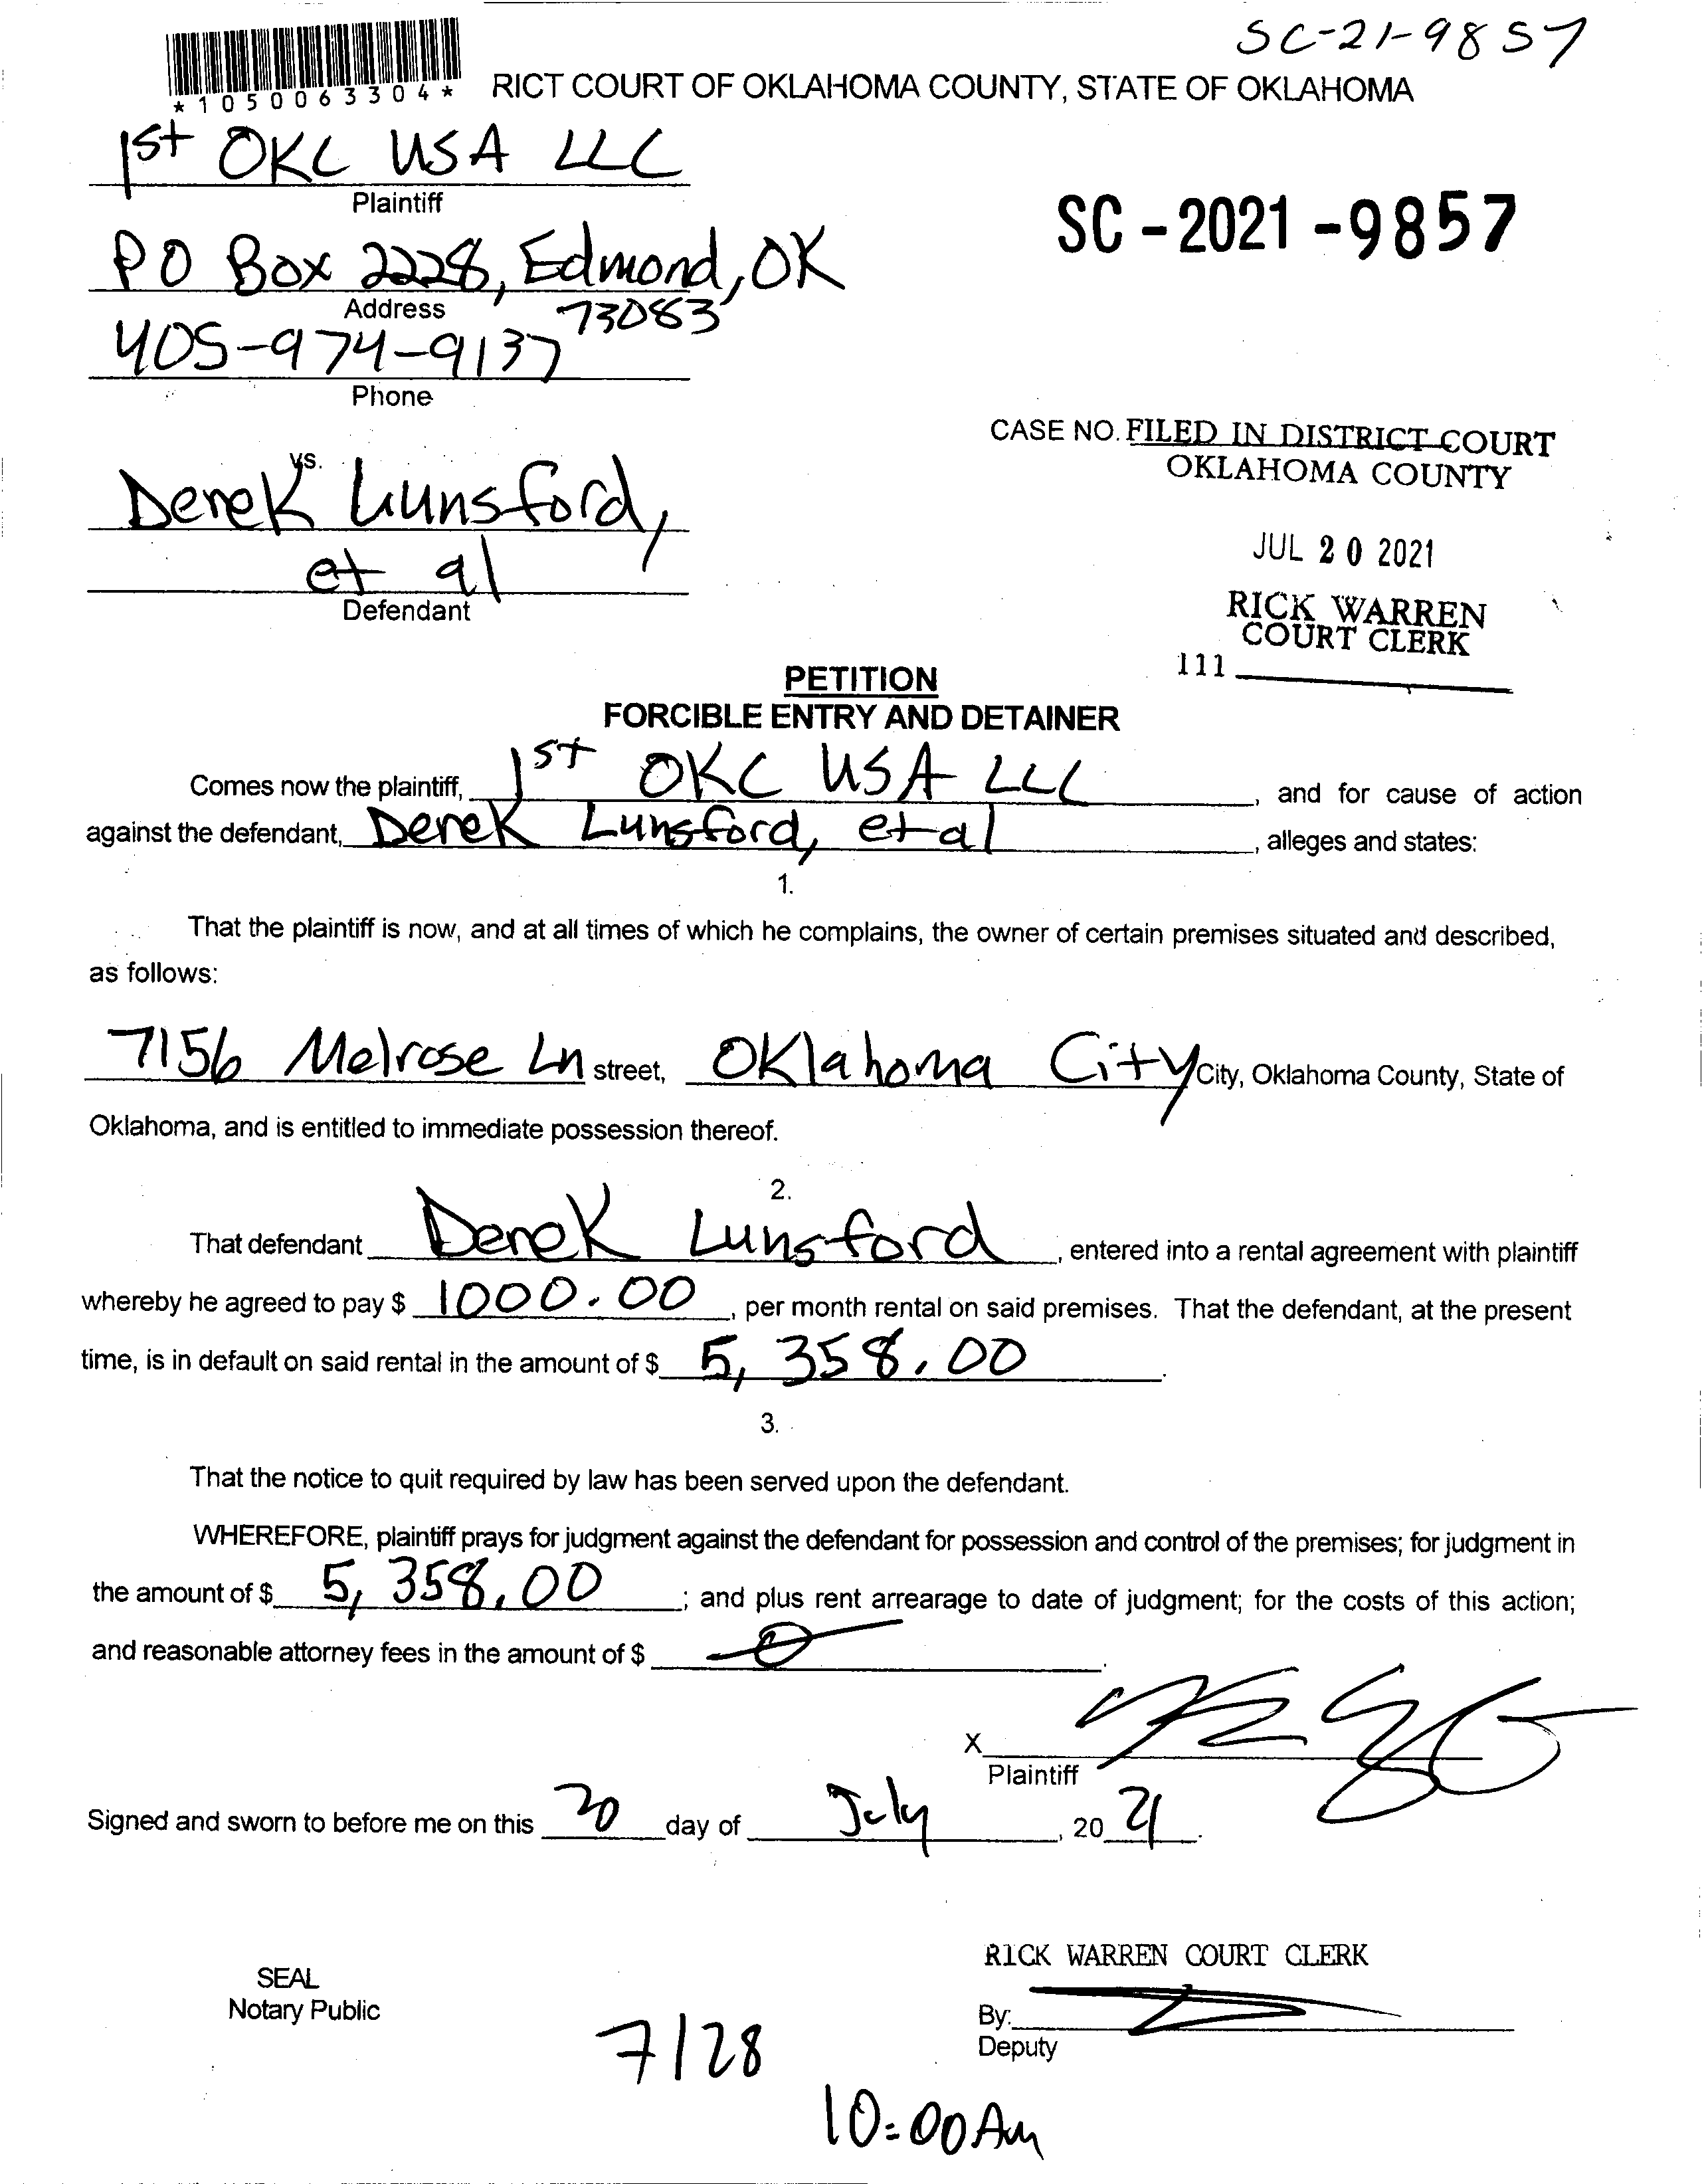 SC-21-9857
*1050063304*
RICT COURT OF OKLAHOMA COUNTY, STATE OF OKLAHOMA
1st OKC USA LLC
Plaintiff
SC-2021-9857
PO Box 2228, Edmond, OK
Address
73083
405-974-9137
Phone
CASE NO. FILED IN DISTRICT COURT
OKLAHOMA COUNTY
vs.
Derek Lunsford,
et al
Defendant
JUL 20 2021
RICK WARREN
COURT CLERK
111
PETITION
FORCIBLE ENTRY AND DETAINER
Comes now the plaintiff, 1st OKC USA LLC, and for cause of action
against the defendant, Derek Lunsford, et al, alleges and states:
1.
That the plaintiff is now, and at all times of which he complains, the owner of certain premises situated and described,
as follows:
7156 Melrose Ln street, Oklahoma City City, Oklahoma County, State of
Oklahoma, and is entitled to immediate possession thereof.
2.
That defendant Derek Lunsford, entered into a rental agreement with plaintiff
whereby he agreed to pay $ 1000.00, per month rental on said premises. That the defendant, at the present
time, is in default on said rental in the amount of $ 5,358.00.
3.
That the notice to quit required by law has been served upon the defendant.
WHEREFORE, plaintiff prays for judgment against the defendant for possession and control of the premises; for judgment in
the amount of $ 5,358.00; and plus rent arrearage to date of judgment; for the costs of this action;
and reasonable attorney fees in the amount of $ 0.
X
Plaintiff
Signed and sworn to before me on this 20 day of July, 2021.
RICK WARREN COURT CLERK
SEAL
Notary Public
By:
Deputy
7/28
10:00 Am